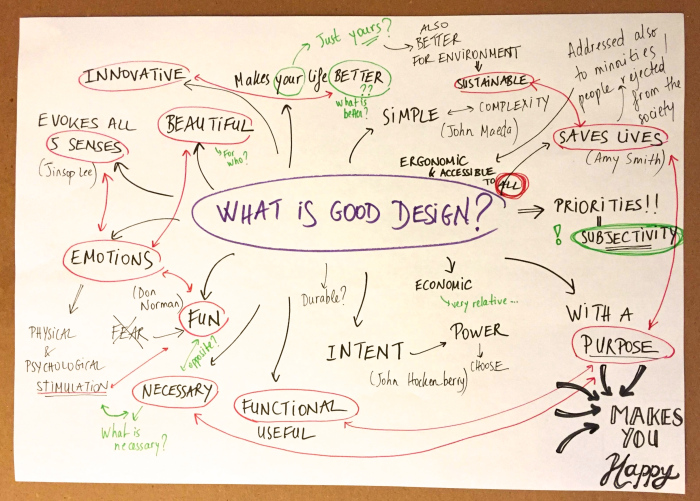 Just yours?
ALSO
BETTER
FOR ENVIRONMENT
Addressed also
to minorities!
people rejected
from the
society
INNOVATIVE
Makes your life BETTER
??
What is
better?
SUSTAINABLE
EVOKES ALL
5 SENSES
(Jinsop Lee)
BEAUTIFUL
For
who?
SIMPLE
COMPLEXITY
(John Maeda)
SAVES LIVES
(Amy Smith)
ERGONOMIC
& ACCESSIBLE
TO ALL
WHAT IS GOOD DESIGN?
PRIORITIES!!
! SUBJECTIVITY
EMOTIONS
(Don
Norman)
PHYSICAL
&
PSYCHOLOGICAL
STIMULATION
FEAR
FUN
opposite?
Durable?
ECONOMIC
very relative...
INTENT
(John Hockenberry)
POWER
CHOOSE
WITH A
PURPOSE
NECESSARY
What is
necessary?
FUNCTIONAL
USEFUL
MAKES
YOU
Happy